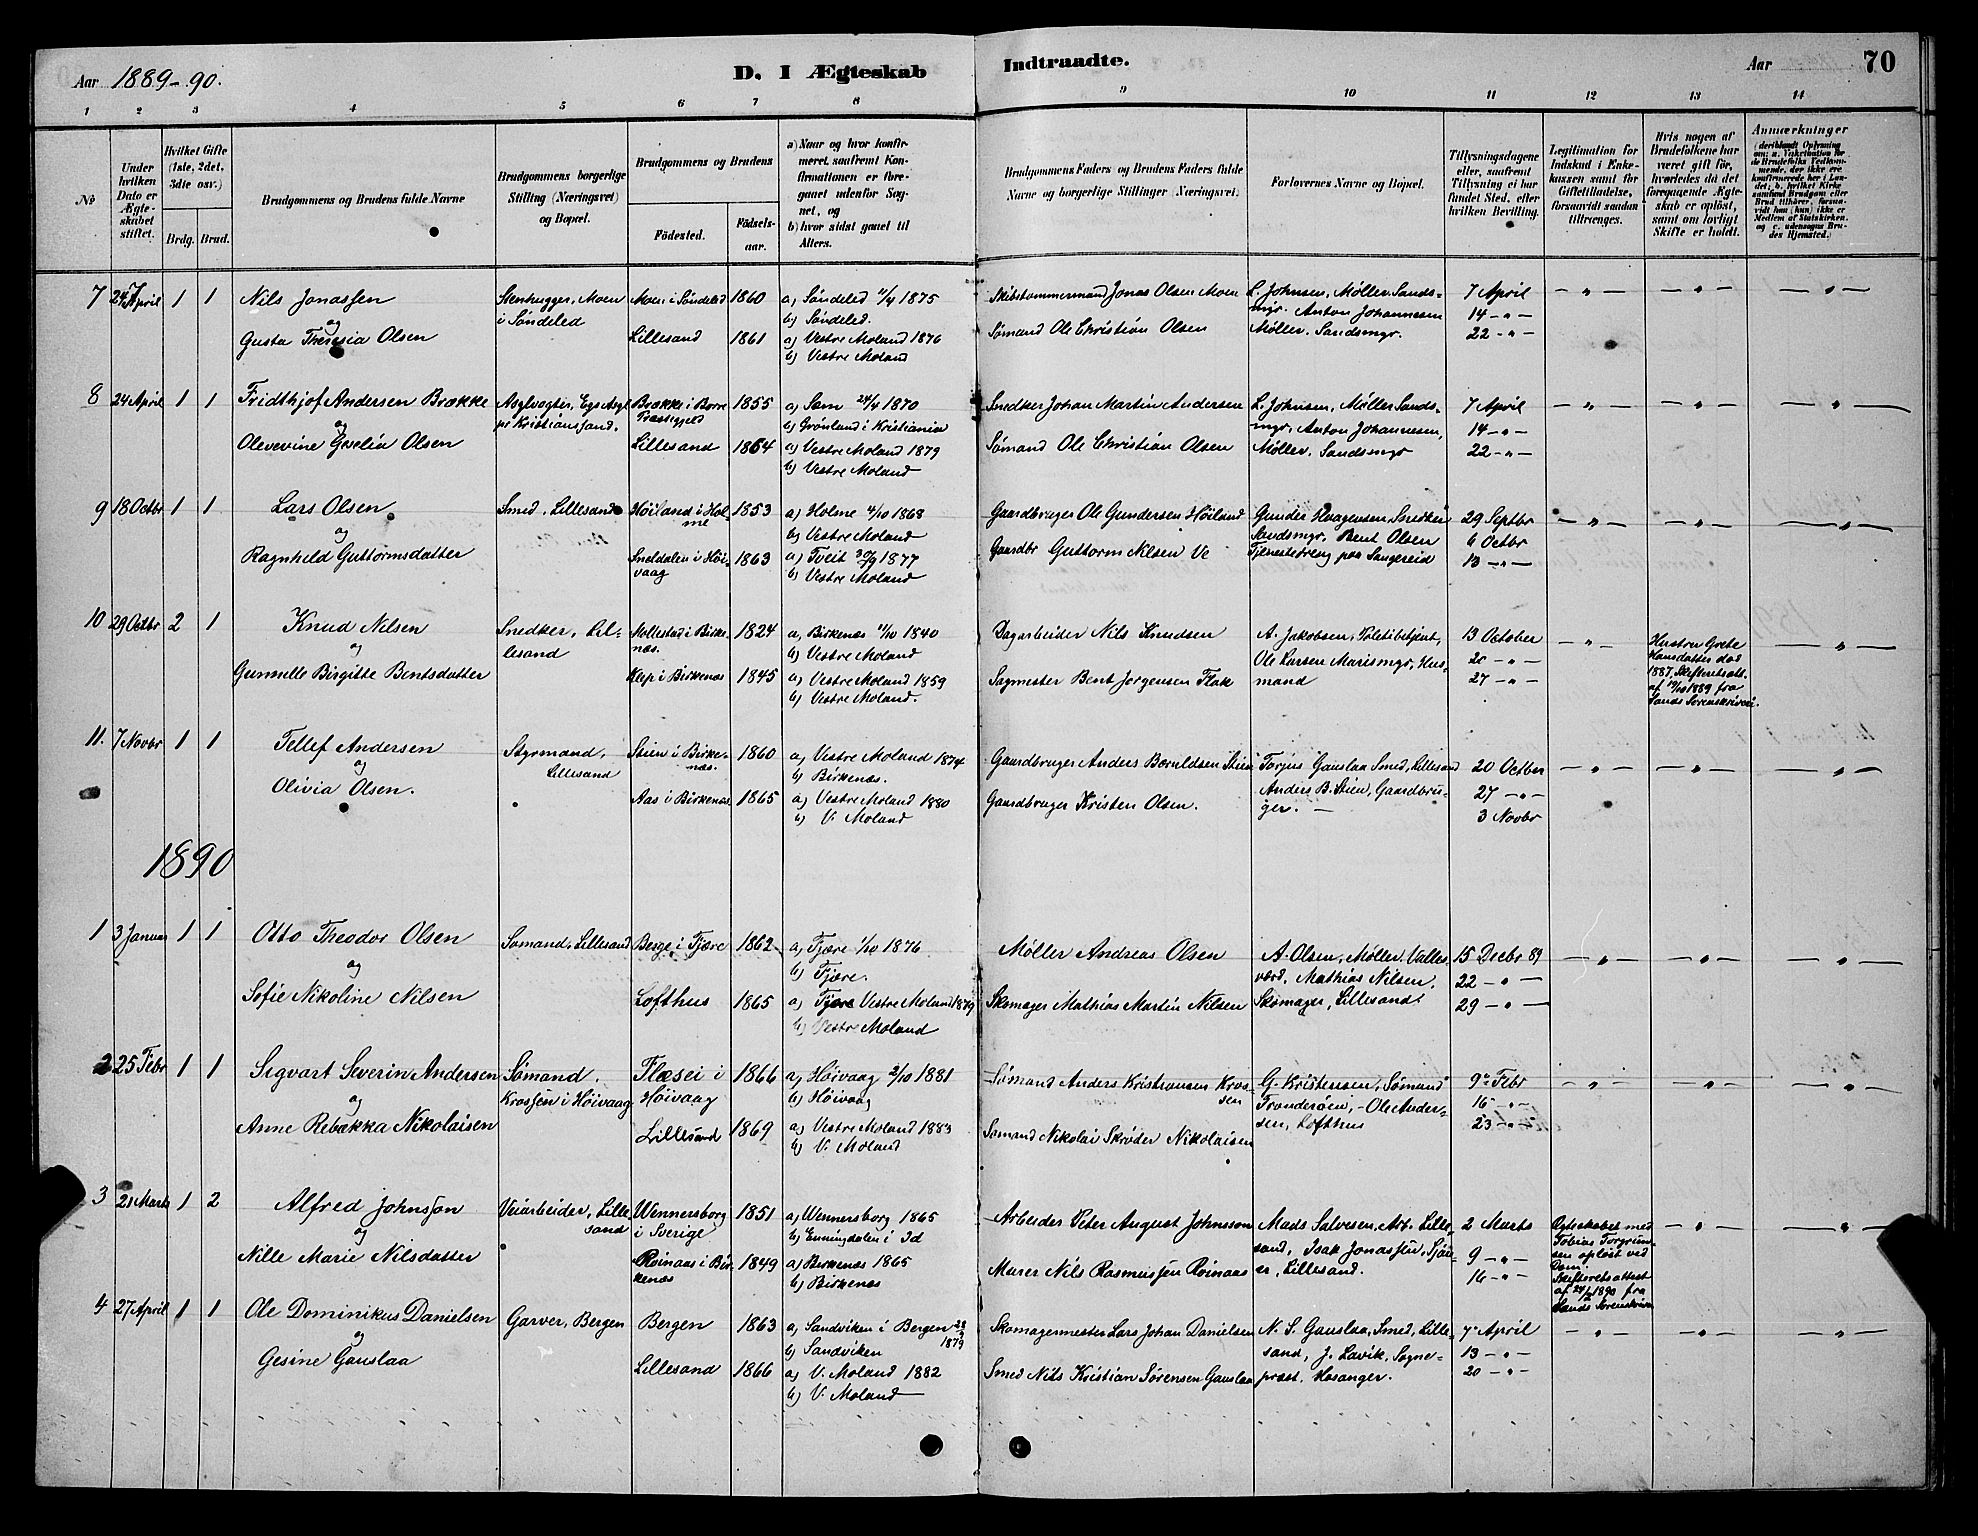 Aar 1889-90. D. I Ægteskab Indtraadte. Aar 70
1 2 3 4 5 6 7 8 9 10 11 12 13 14
No
Under hvilken Dato er Ægteskabet stiftet.
Hvilket Gifte (1ste, 2det, 3die osv.)
Brdg. Brud.
Brudgommens og Brudens fulde Navne
Brudgommens borgerlige Stilling (Næringsvei) og Bopæl.
Brudgommens og Brudens
Födested. Födselsaar.
a) Naar og hvor konfirmeret, saafremt Konfirmationen er foregaaet udenfor Sognet, og
b) hvor sidst gaaet til Alters.
Brudgommens Faders og Brudens Faders fulde Navne og borgerlige Stillinger (Næringsvei).
Forlovernes Navne og Bopæl.
Tillysningsdagene eller, saafremt Tillysning ei har fundet Sted, efter hvilken Bevilling.
Legitimation for Indskud i Enkekassen samt for Giftetilladelse, forsaavidt saadan tiltrænges.
Hvis nogen af Brudefolkene har været gift för, hvorledes da det foregaaende Ægteskab er oplöst, samt om lovligt Skifte er holdt.
Anmærkninger
7 April 1 1 Nils Jonassen
og
Gusta Theresia Olsen
Stenhugger, Moen
i Søndeled
Moen i Søndeled 1860
Lillesand 1861
a) Søndeled 11/4 1875
b) Søndeled.
a) Vestre Moland 1876
b) Vestre Moland
Skibstømmermand Jonas Olsen Moen
Sømand Ole Christian Olsen
L. Johnsen, Møller Sands-
mgr. Anton Johannesen
Møller, Sandsmgr.
7 April
14 - " -
22 - " -
8 24 April 1 1 Fridthjof Andersen Brække
og
Olevevine Gvelia Olsen
Asylvogter, Egs Asyl
pr Kristianssand.
Brække i Borre
Præstegjeld 1855
Lillesand 1864
a) Sem 24/4 1870
b) Grønland i Kristiania
a) Vestre Moland 1879
b) Vestre Moland
Snedker Johan Martin Andersen
Sømand Ole Christian Olsen
L. Johnsen, Møller Sands-
mgr, Anton Johannesen,
Møller, Sandsmgr
7 April
14 - " -
22 - " -
9 18 Octbr 1 1 Lars Olsen
og
Ragnhild Guttormsdatter
Smed, Lillesand
Høiland i Hol-
me 1853
Sneldalen i Høi-
vaag 1863
a) Holme 4/10 1868
b) Vestre Moland
a) Tveit 30/9 1877
b) Vestre Moland
Gaardbruger Ole Gundersen Høiland
Gaardbr Guttorm Nilsen Ve
Gunder Haagensen, Snedker
Sandsmgr, Bent Olsen
Tjenestedreng paa Sangereid
29 Septbr
6 Octbr
13 - " -
10 29 Octbr 2 1 Knud Nilsen
og
Gunnelle Birgitte Bentsdatter
Snedker, Lil-
lesand
Mollestad i Birke-
næs. 1824
Klep i Birkenæs 1845
a) Birkenæs 11/10 1840
b) Vestre Moland
a) Vestre Moland 1859
b) Vestre Moland.
Dagarbeider Nils Knudsen
Sagmester Bent Jørgensen Flak
A. Jakobsen, Politibetjent,
Ole Larsen Marismgr, Hus-
mand
13 October
20 - " -
27 - " -
Hustru Grete
Hansdatter død
1887, Skifteretsatt.
af 19/10 1889 fra
Sands Sorenskriveri.
11. 7 Novbr 1 1 Tellef Andersen
og
Olivia Olsen.
Styrmand,
Lillesand
Stien i Birke-
næs. 1860
Aas i Birkenæs 1865
a) Vestre Moland 1874
b) Birkenæs.
a) Vestre Moland 1880
b) V. Moland
Gaardbruger Anders Beruldsen Stien
Gaardbruger Kristen Olsen.
Torjus Gauslaa Smed, Lillesand
Anders B. Stien, Gaardbru-
ger. -
20 Octber
27 - " -
3 Novbr
1890
1 3 Januar 1 1 Otto Theodor Olsen
og
Sofie Nikoline Nilsen
Sømand, Lillesand
Berge i Fjære 1862
Lofthus 1865
a) Fjære 1/10 1876
b) Fjære.
a) Fjære Vestre Moland 1879
b) Vestre Moland
Møller Andreas Olsen
Skomager Mathias Martin Nilsen
A. Olsen, Møller, Valles-
værd, Mathias Nilsen,
Skomager, Lillesand.
15 Decbr 89
22 - " -
29 - " -
2 25 Febr 1 1 Sigvart Severin Andersen
og
Anne Rebakka Nikolaisen
Sømand.
Krossen i Høivaag
Flæsei i
Høivaag 1866
Lillesand 1869
a) Høivaag 2/10 1881
b) Høivaag
a) Vestre Moland 1883
b) V. Moland
Sømand Anders Kristiansen Kros-
sen
Sømand Nikolai Skrøder Nikolaisen
G. Kristensen, Sømand
Trondeøen, - Ole Ander-
sen, Lofthus
9 Febr
16 - " -
23 - " -
3 21 Marts 1 2 Alfred Johnsson
og
Nille Marie Nilsdatter
Veiarbeider, Lille
sand
Wennersborg
i Sverige 1851
Røinaas i Bir-
kenæs 1849
a) Wennersborg 1865
b) Enningdalen i Id
a) Birkenæs 1865
b) Birkenæs
Arbeider Peter August Johnsson
Murer Nils Rasmussen Røinaas
Mads Salvesen, Arb. Lille-
sand, Isak Jonassen,
Lillesand.
2 Marts
9 - " -
16 - " -
Egteskabet med
Tobias Torgrim-
sen opløst ved
Dom.
Skifteretsattest
af 24/2 1890 fra
Sands Sorenskriveri
4 27 April 1 1 Ole Dominikus Danielsen
og
Gesine Gauslaa
Garver, Bergen
Bergen 1863
Lillesand 1866
a) Sandviken i Bergen 1879
b) Sandviken
a) V. Moland 1882
b) V. Moland
Skomagermester Lars Johan Danielsen
Smed Nils Kristian Sørensen Gauslaa
N. S. Gauslaa, Smed, Lille-
sand, J. Lavik, Sogne-
præst, Hosanger.
7 April
13 - " -
20 - " -